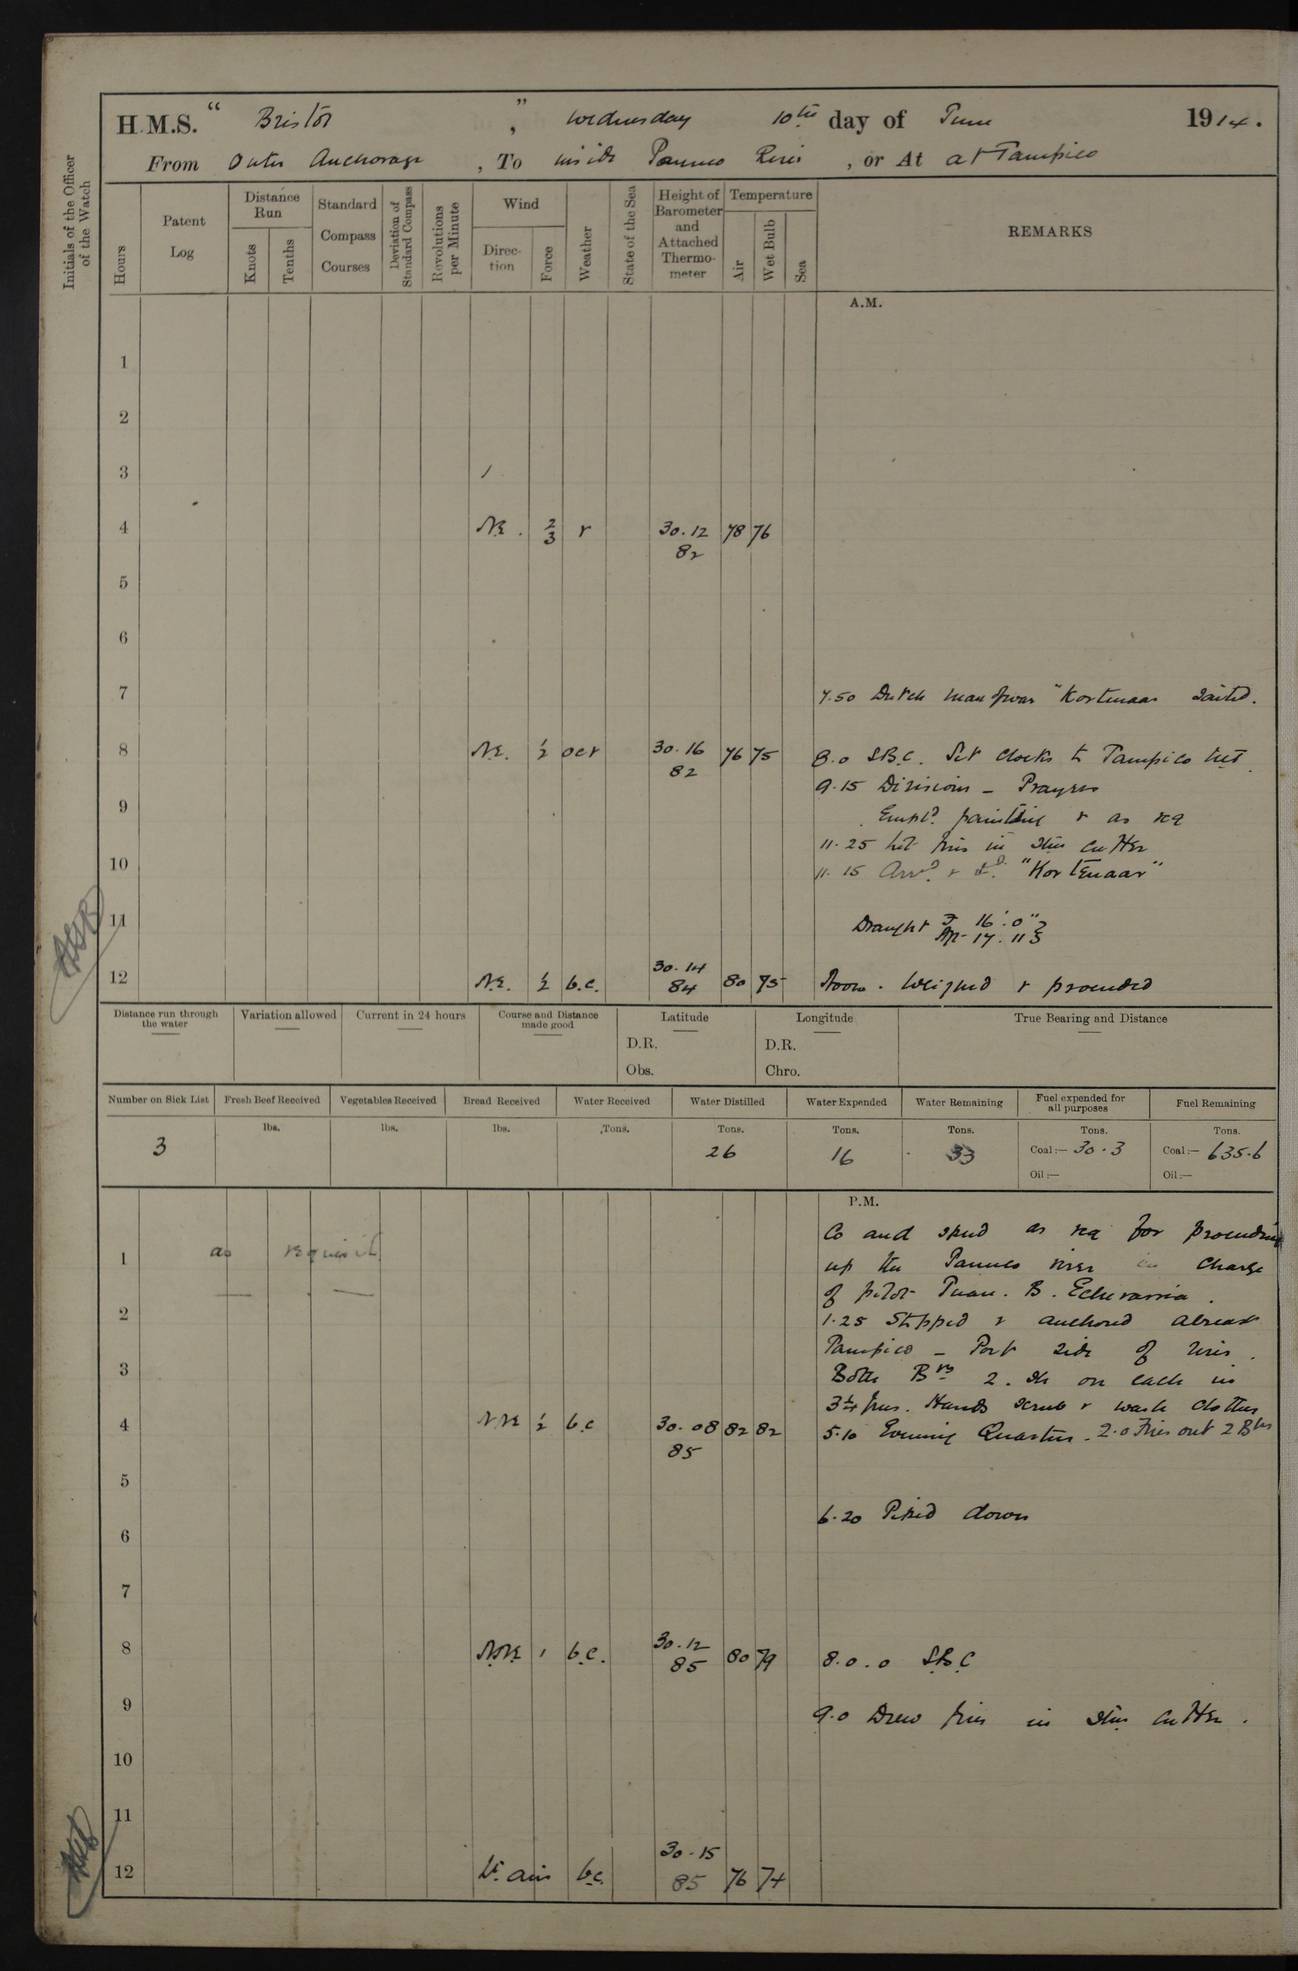 H.M.S. " Bristol ", Wednesday 10th day of June 1914.
From Outer Anchorage, To inside Panuco River, or At at Tampico
Initials of the Officer of the Watch
Hours
Patent Log
Distance Run
Knots
Tenths
Standard Compass Courses
Deviation of Standard Compass
Revolutions per Minute
Wind
Direction
Force
Weather
State of the Sea
Height of Barometer and Attached Thermometer
Temperature
Air
Wet Bulb
Sea
REMARKS
A.M.
1
2
3
4 N.E. 2/3 r 30.12 82 78 76
5
6
7
7.50 Dutch man of war "Kortenaar sailed.
8 N.E. 1/2 ocr 30.16 82 76 75
8.0 S.B.C. Set clocks to Tampico
9.15 Divisions – Prayers
9
Empld. painting & as req
11.25 lit fires in stm cutter
10
11.15 Arrd. & "Kortenaar"
11
Draught F 16'.0"
Aft 17.11
12 N.E. 1/2 b.c. 30.14 84 80 75
Noon. Weighed & proceeded
Distance run through the water
Variation allowed
Current in 24 hours
Course and Distance made good
Latitude
D.R.
Obs.
Longitude
D.R.
Chro.
True Bearing and Distance
Number on Sick List
Fresh Beef Received
Vegetables Received
Bread Received
Water Received
Water Distilled
Water Expended
Water Remaining
Fuel expended for all purposes
Fuel Remaining
3
lbs.
lbs.
lbs.
Tons.
Tons. 26
Tons. 16
Tons. 33
Tons. Coal:— 30.3 Oil:—
Tons. Coal:— 635.6 Oil:—
P.M.
Co and speed as req for proceeding
1 as requisite
up the Panuco river in charge
of pilot Juan. B. Echevarria.
2
1.25 Stopped & anchored abreast
Tampico – Port side of river.
3
Both Brs 2. sh on each in
3 1/4 fms. Hands scrub & wash clothes
4 NNE 1/2 b.c 30.08 85 82 82
5.10 Evening Quarters. 2.0 Fires out 2 Blrs
5
6.20 Piped down
6
7
8 N.N.E. 1 b.c. 30.12 85 80 79
8.0.0 S.B.C
9
9.0 Drew fires in stm cutter.
10
11
12 Lt. airs b.c. 30.15 85 76 74